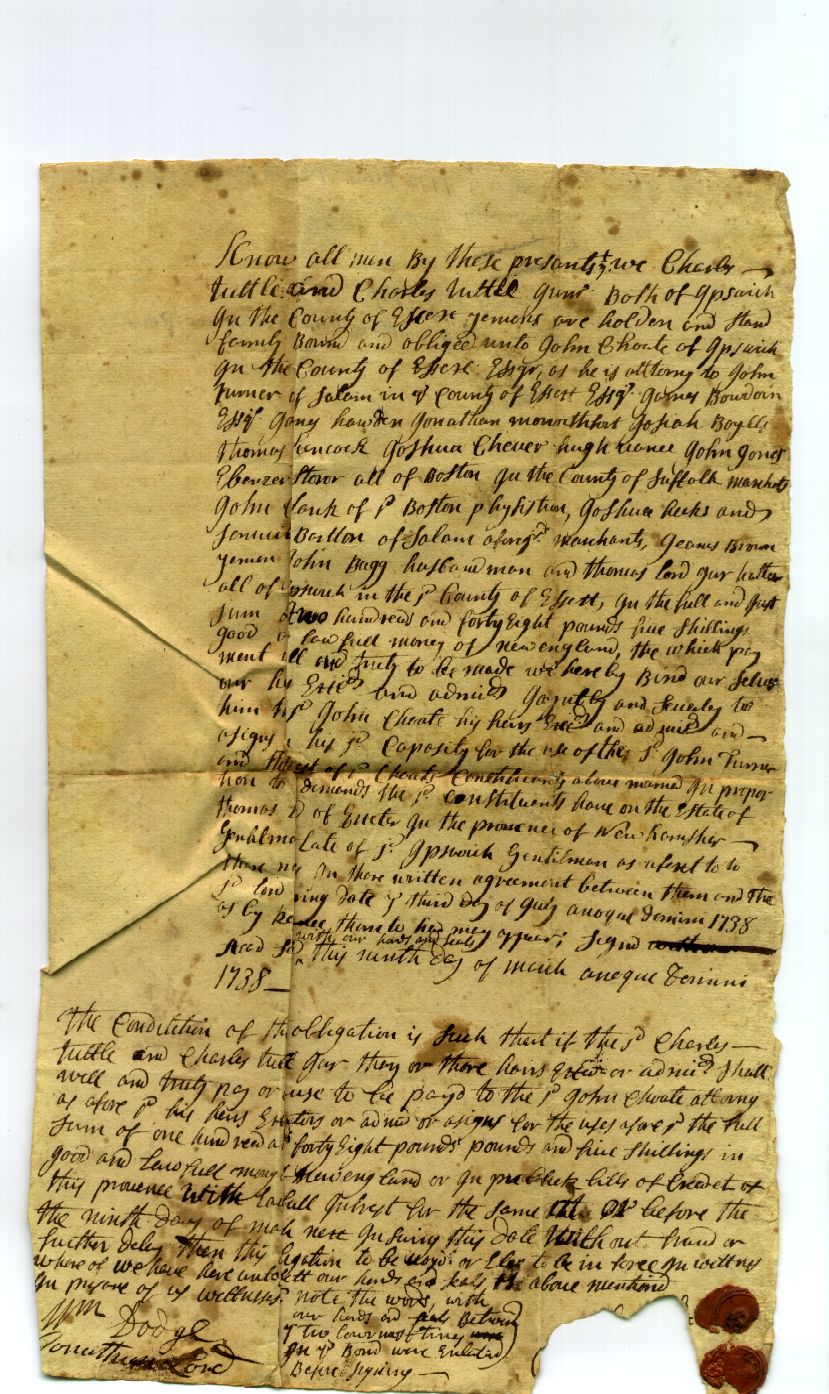 Know all men By these presants yt we Charls
tuttle and Charles tuttle Junr Both of Ipswich
In the County of Essex yemens are holden and stand
fermly Bound and obliged unto John Choate of Ipswich
In the County of Essex Esqr, as he is attorny to John
turner of Salam in ye County of Essex Esqr James Bowdoin
Esqr Jonathan Josiah
thomas hancock Joshua Chever hugh vance John Jones
Ebenzer Storor all of Boston In the County of Suffolk marchats
John Clark of sd Boston phyhstian, Joshua hicks and
Bartton of Salam aforesd marchants, Jeams Brown
yemen John Bagg husbandman and thomas lord Jur hatter
all of Ipswich in the sd County of Essex, In the full and Just
sum of two hundread and forty Eight pounds five shillings
good lawfull money of newengland, the which pay
ment and truly to be made we hereby Bind our selves
our and admrs Jointly and severly to
him sd John Choate his heirs Exers and admrs and
asigns his sd Capasity for the use of the sd John turner
and the rest of sd Choats Constituants above named In propor
tion to demands the sd constituents have on the Estate of
thomas of Exeter In the provence of New hamsher
Gentelman Late of sd Ipswich Gentelman as referet to
In there written agreement between them and the
sd lord date ye third day of July anoque domini 1738
as by thereto had may appear; signd
with our hands and seals
this ninth day of march anoque Domini
1738
the Condition of this obligation is such that if the sd Charles
tuttle and Charles tuttle Jur they or there hairs or admrs shall
will and truly pay or cause to be payd to the sd John Choate attorny
as afore sd his heirs or admrs or asigns for the uses afore sd the full
sum of one hundread and forty Eight pounds pounds and five shillings in
good and Lawfull mony of Newengland or In publick bills of Creadet of
this provence with Lafull Intrest for the same att or before the
the ninth day of mah next Insuing this Date without fraud or
further delay then this obligation to be voyd or Else to be in force In wittnes
where of we have here unto sett our hands and seals the above mentiond
In presane of us wittneses note the words, with
our hands and seals Between
ye two lines
In ye Bond were Enterlined
Before signing
Wm
Dodge
Jonathan Lord